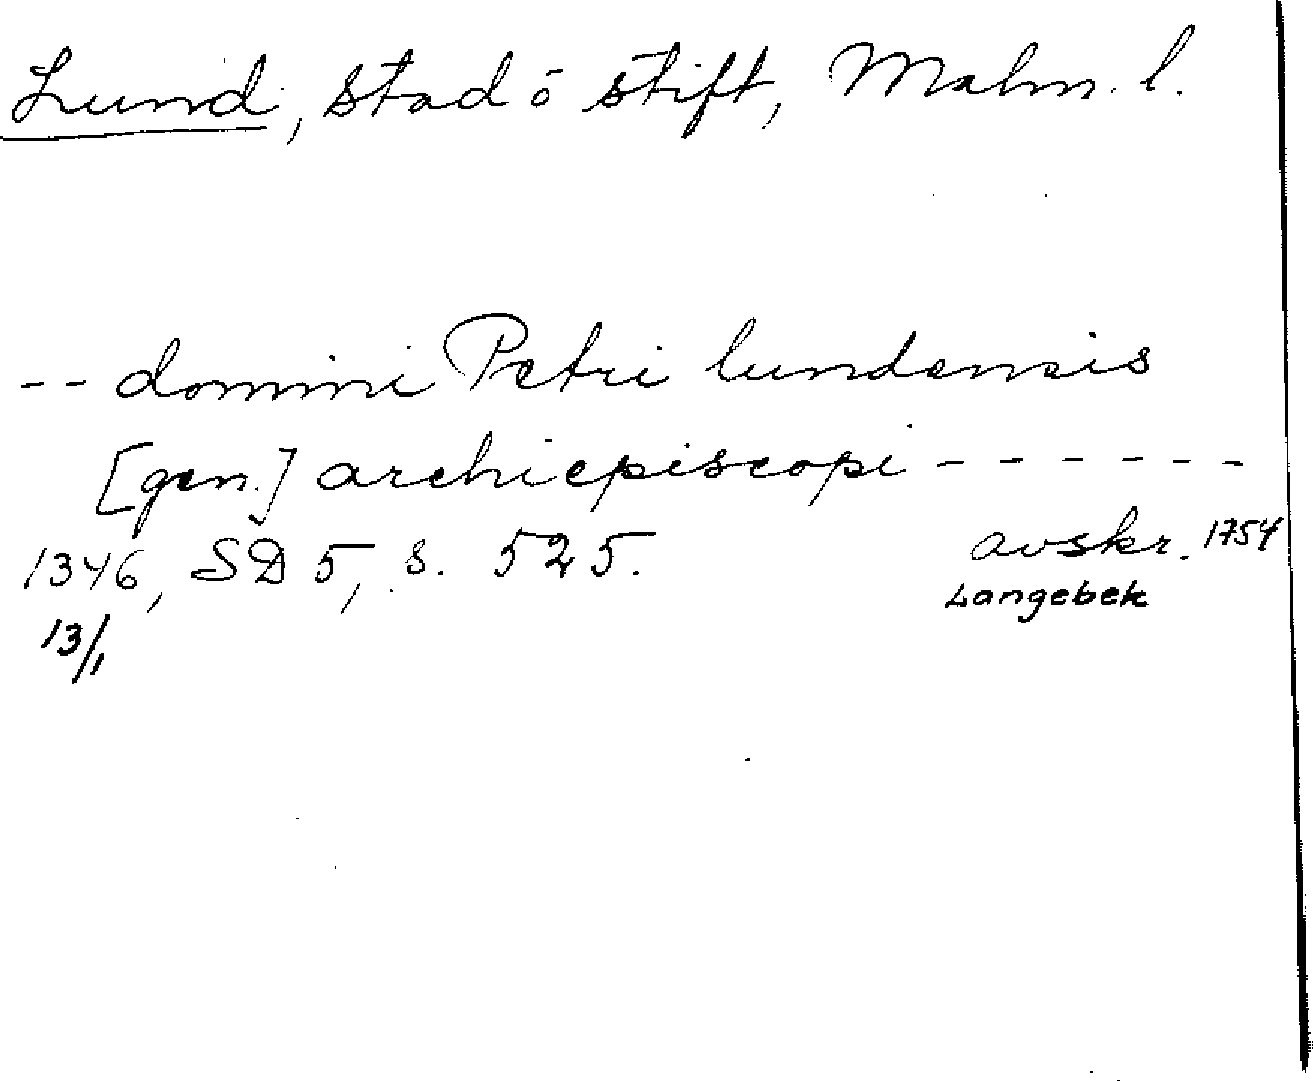 Lund, stad o stift, Malm. l.
-- domini Petri lundensis
[gen.] archiepiscopi ------
1346, SD 5, s. 525. avskr. 1754
13/1 Langebek